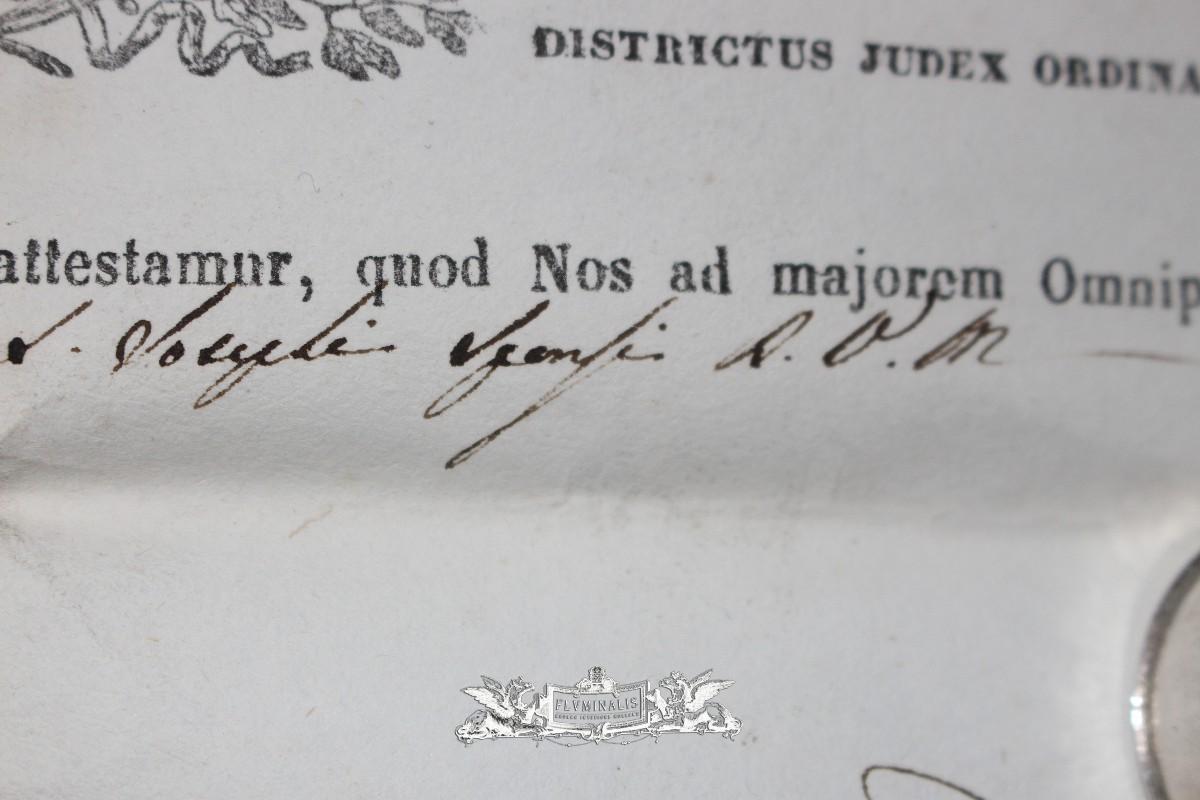 DISTRICTUS JUDEX ORDINA
attestamur, quod Nos ad majorem Omnip
S. Josephi Sponsi B. V. M
FLVMINALIS